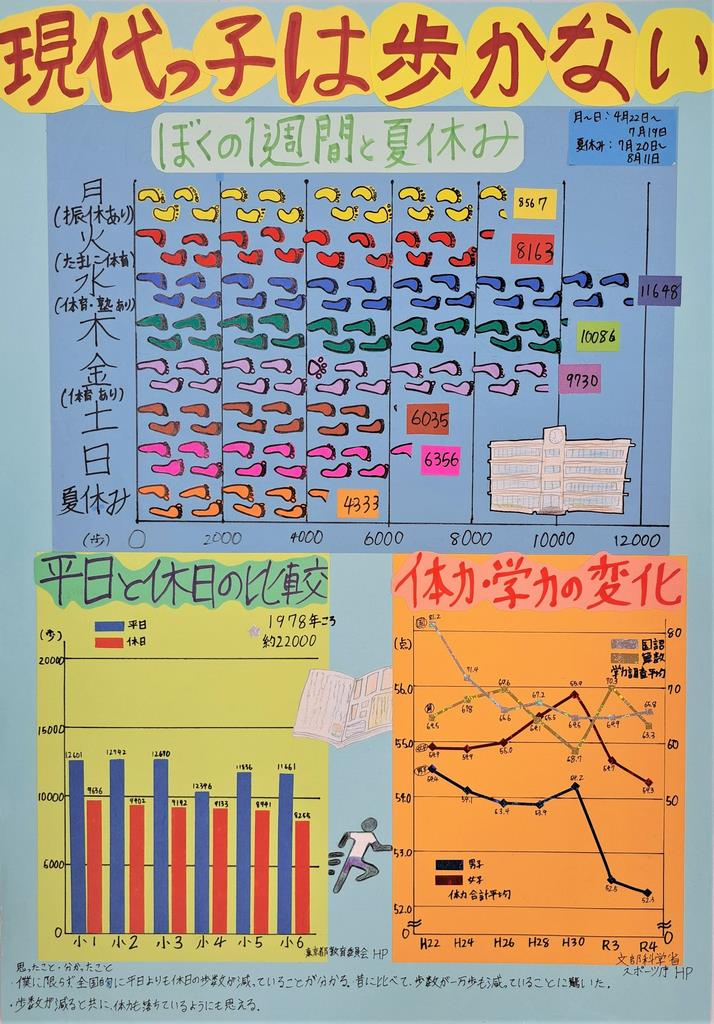 現代っ子は歩かない
ぼくの1週間と夏休み
月〜日:4月22日〜
7月19日
夏休み:7月20日〜
8月11日
月
(振休あり)
8567
火
(たまに体育)
8163
水
(体育・塾あり)
11648
木
10086
金
(体育あり)
9730
土
6035
日
6356
夏休み
4333
(歩) 0 2000 4000 6000 8000 10000 12000
平日と休日の比較
(歩)
平日
休日
1978年ころ
約22000
20000
15000
10000
5000
0
12601 12742 12680 10396 11836 11661
9636 9402 9192 9133 8941 8255
小1 小2 小3 小4 小5 小6
東京都教育委員会 HP
体力・学力の変化
(点)
国語
算数
学力調査平均
80
70
60
50
0
56.0
55.0
54.0
53.0
52.0
81.2 71.4 65.6 67.2 64.5 65.8
64.5 67.8 69.6 64.1 70.3 63.3
54.9 54.9 55.0 55.5 55.9 54.7 54.3
54.1 53.9 54.2 52.5 52.3
男子
女子
体力合計平均
H22 H24 H26 H28 H30 R3 R4
文部科学省
スポーツ庁 HP
思ったこと・分かったこと
・僕に限らず全国的に平日よりも休日の歩数が減っていることが分かる。昔に比べて、歩数が一万歩も減っていることに驚いた。
・歩数が減ると共に、体力も落ちているようにも思える。